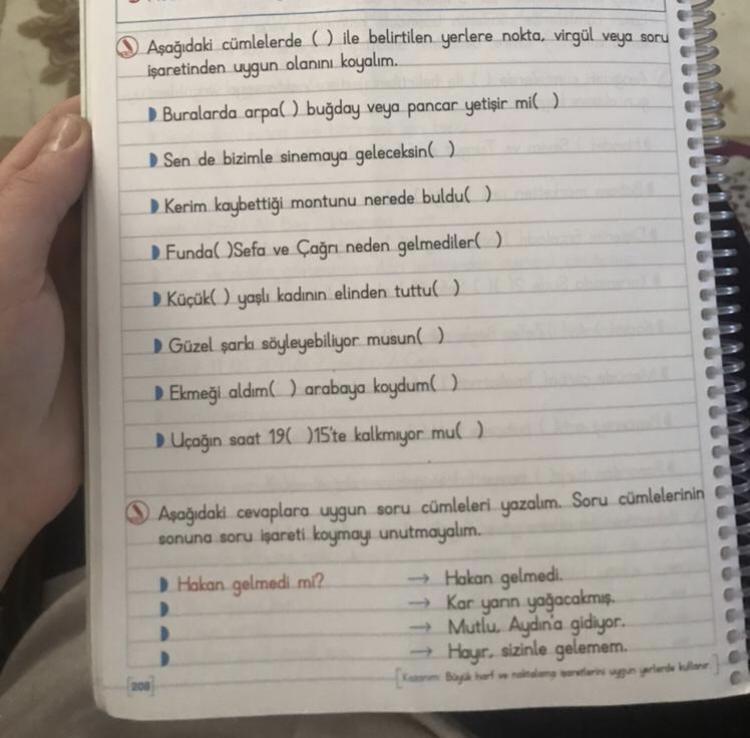 Aşağıdaki cümlelerde ( ) ile belirtilen yerlere nokta, virgül veya soru
işaretinden uygun olanını koyalım.
Buralarda arpa( ) buğday veya pancar yetişir mi( )
Sen de bizimle sinemaya geleceksin( )
Kerim kaybettiği montunu nerede buldu( )
Funda( )Sefa ve Çağrı neden gelmediler( )
Küçük( ) yaşlı kadının elinden tuttu( )
Güzel şarkı söyleyebiliyor musun( )
Ekmeği aldım( ) arabaya koydum( )
Uçağın saat 19( )15'te kalkmıyor mu( )
Aşağıdaki cevaplara uygun soru cümleleri yazalım. Soru cümlelerinin
sonuna soru işareti koymayı unutmayalım.
Hakan gelmedi mi? → Hakan gelmedi.
→ Kar yarın yağacakmış.
→ Mutlu, Aydın'a gidiyor.
→ Hayır, sizinle gelemem.
[208]
[Kazanım: Büyük harf ve noktalama işaretlerini uygun yerlerde kullanır.]